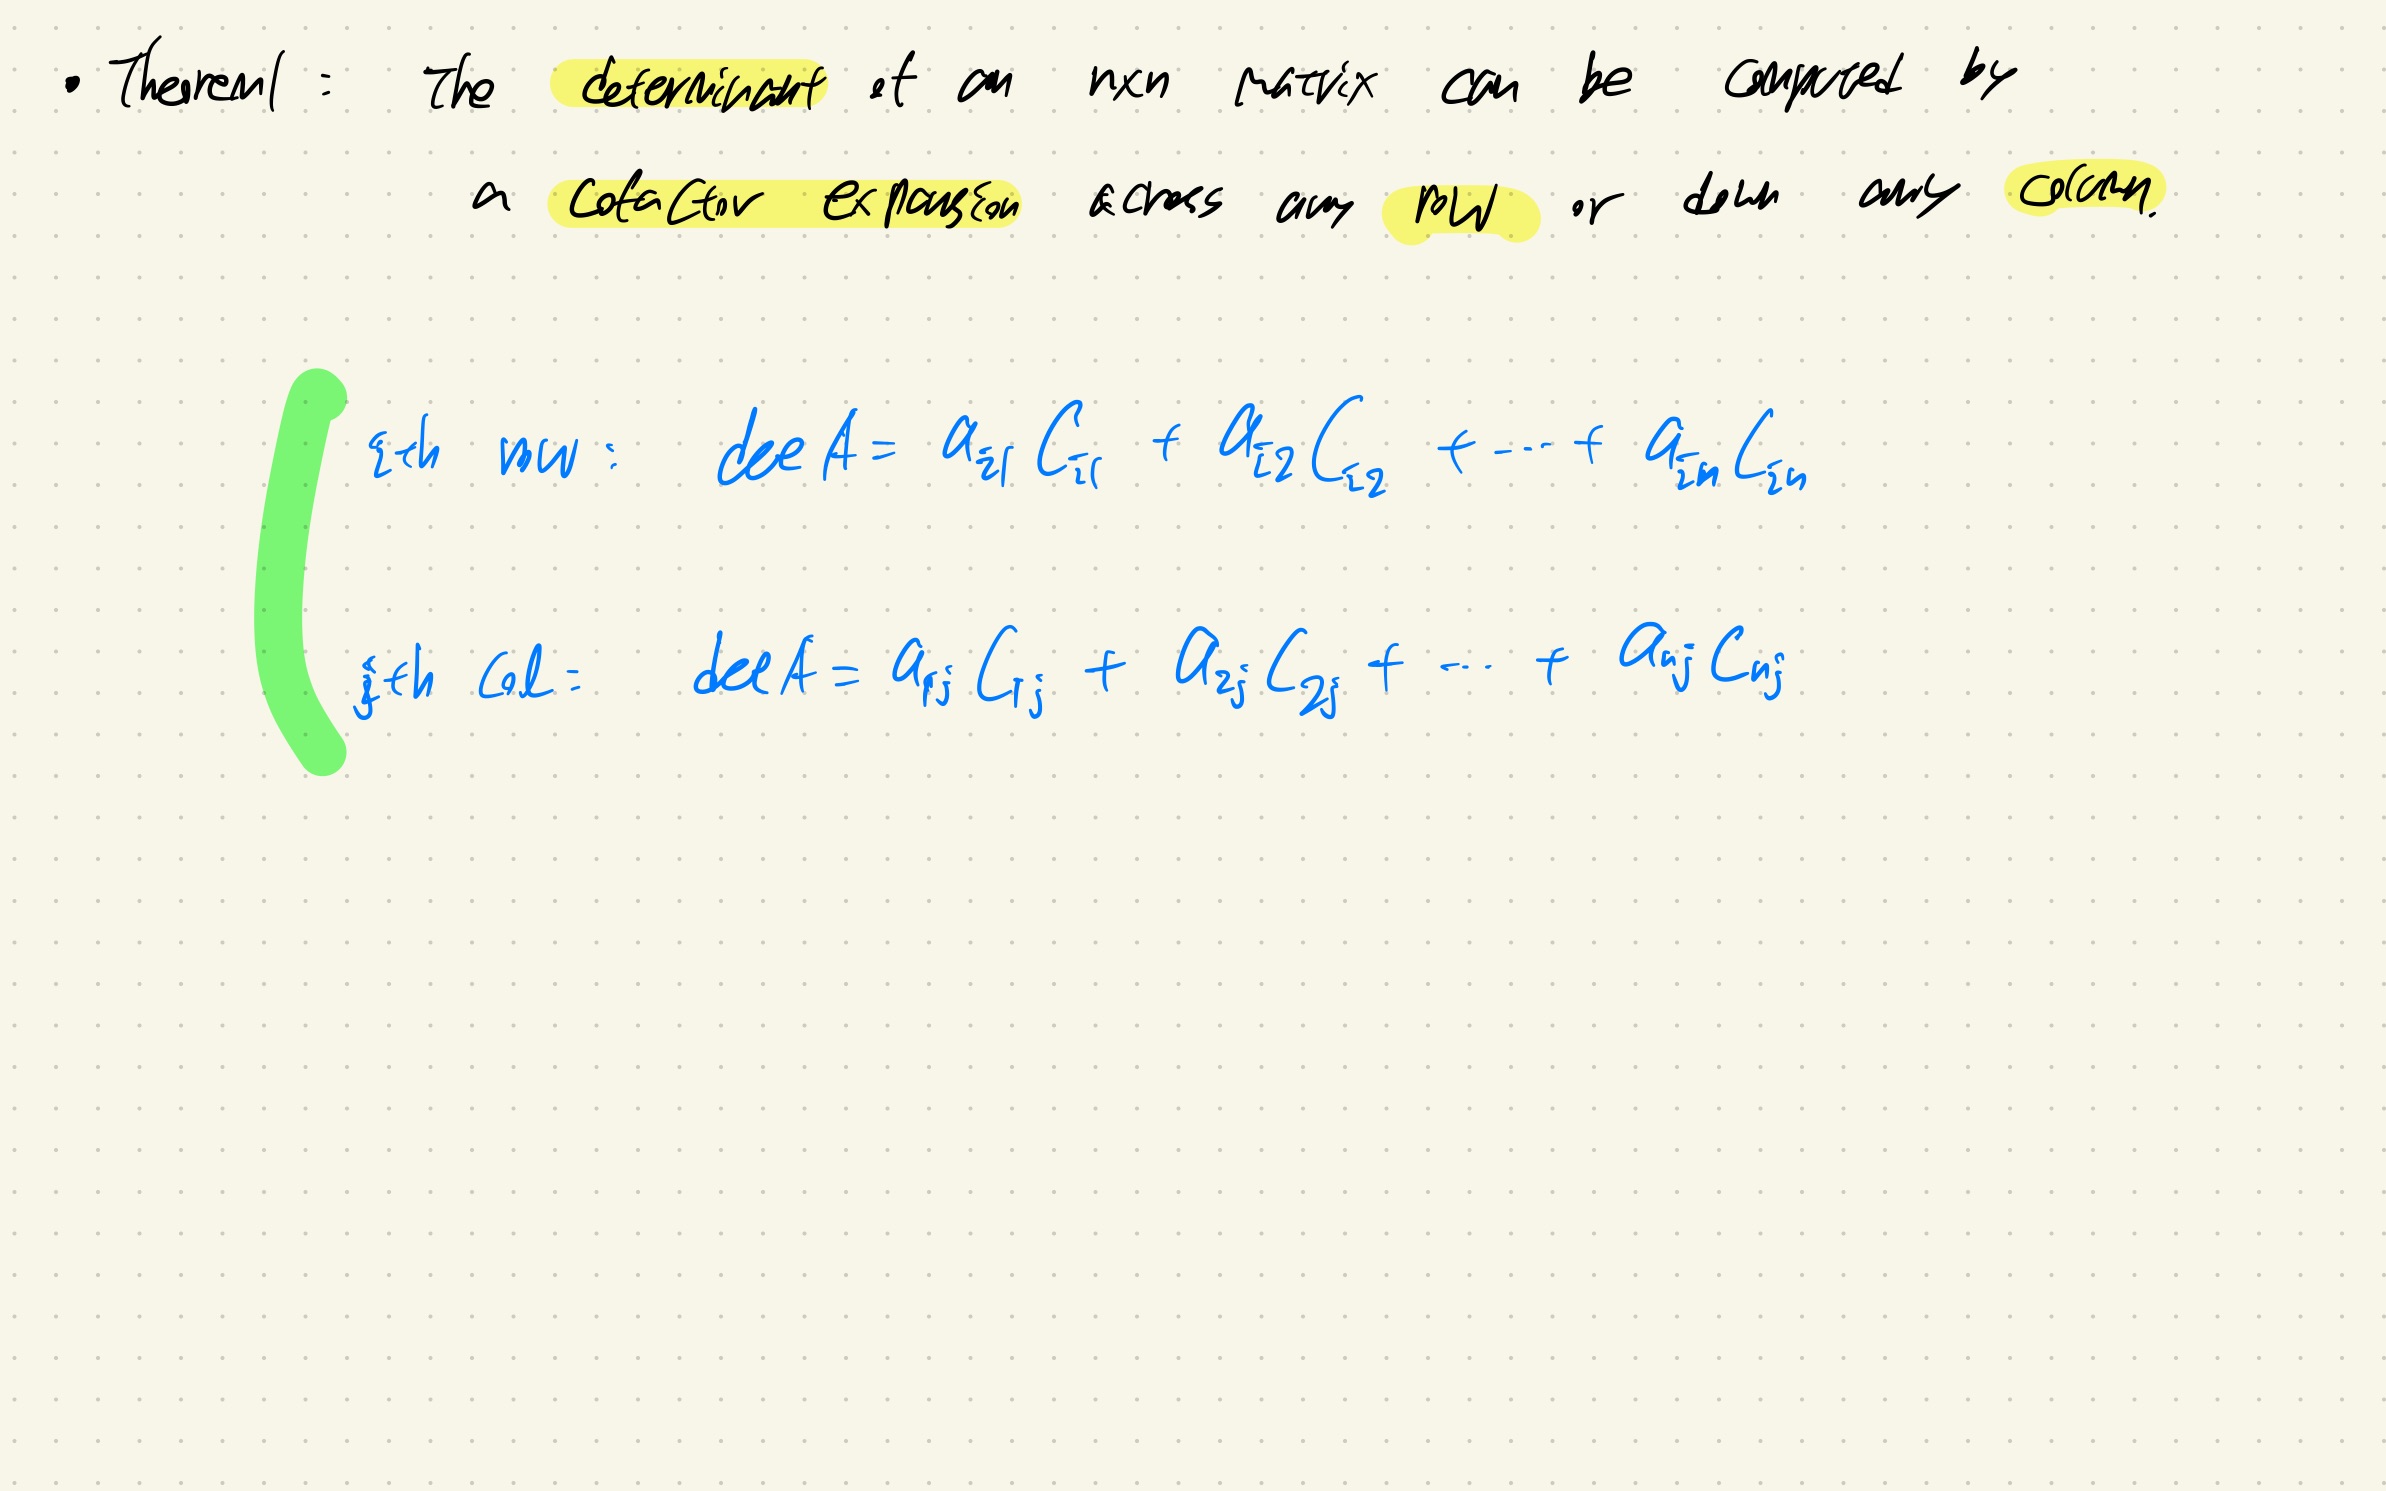 • Theorem 1 : The determinant of an nxn matrix can be computed by
a cofactor expansion across any row or down any column.
ith row: det A = a_{i1} C_{i1} + a_{i2} C_{i2} + ... + a_{in} C_{in}
jth Col: det A = a_{1j} C_{1j} + a_{2j} C_{2j} + ... + a_{nj} C_{nj}